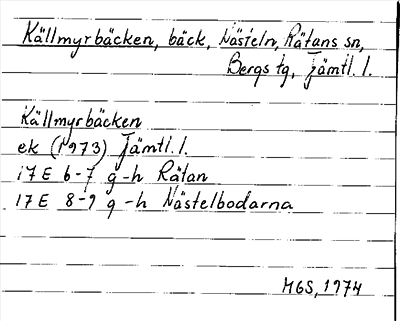 Källmyrbäcken, bäck, Nästeln, Rätans sn,
Bergs tg, Jämtl. l.
Källmyrbäcken
ek (1973) Jämtl. l.
17E 6-7 g-h Rätan
17E 8-9 g-h Nästelbodarna
MGS, 1974